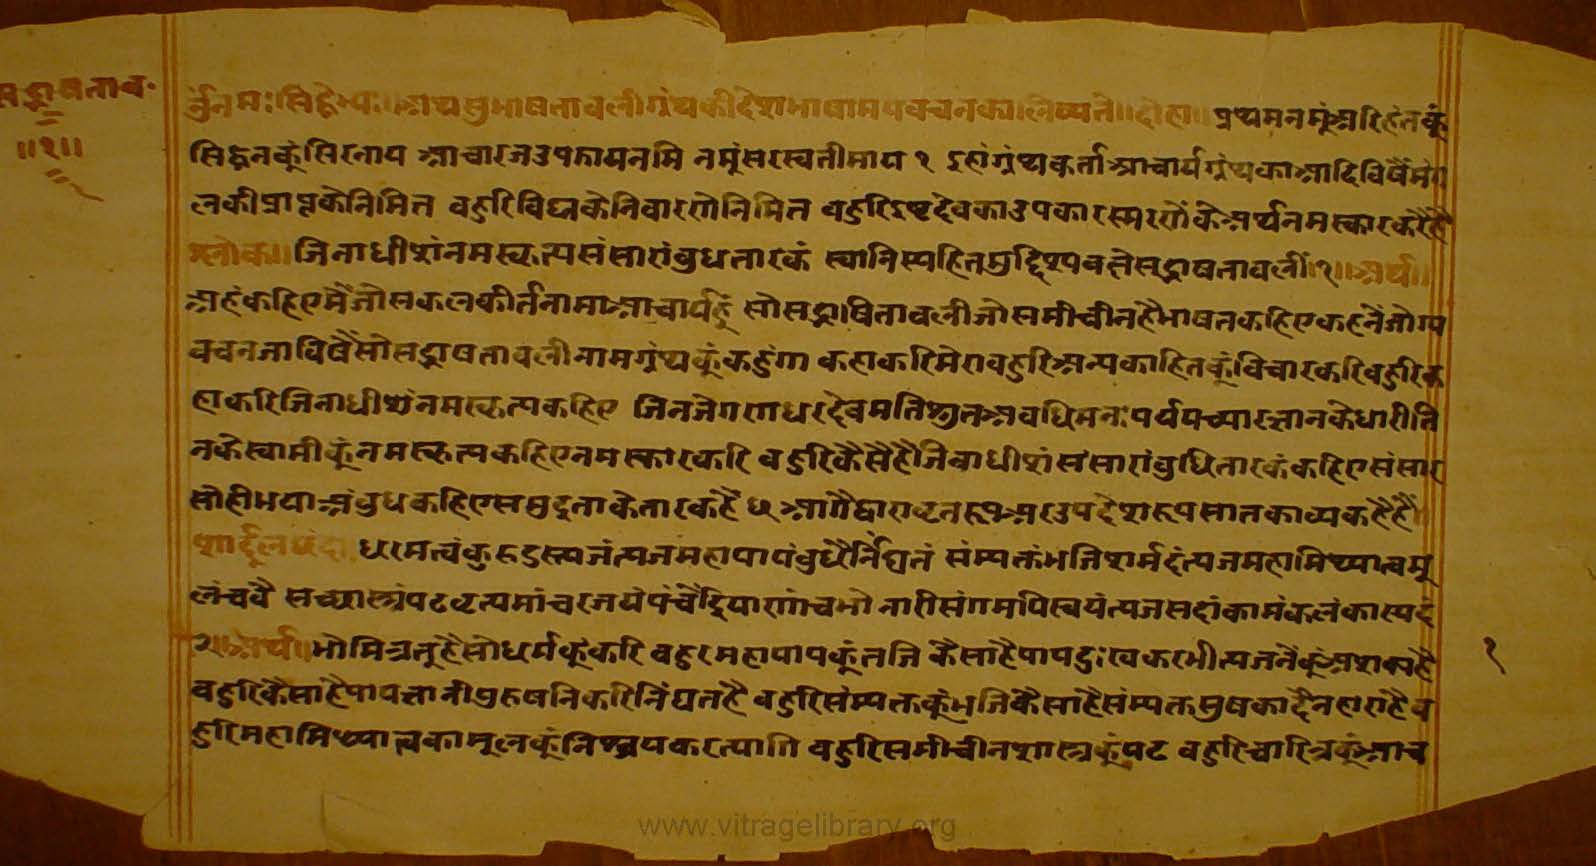 सद्भाषताव॰
॥१॥
र्द्दनमःसिद्धेभ्यः॥अथसुभाषतावलीग्रंथकीदेशभाषामयवचनकालिष्यते॥दोहा॥प्रथमनमूंअरिहंतकूं
सिद्धनकूंसिरनाय आचारजउपझायनमि नमूंसरस्वतीमाय १ इहांग्रंथकर्ताआचार्यग्रंथकाआदिविषैंमंग
लकीप्राप्तकेनिमित्त बहुरिविघ्नकेनिवारणेनिमित बहुरिइष्टदेवकाउपकारस्मरणेंकेअर्थनमस्कारकरैहै
श्लोक॥जिनाधीशंनमस्कृत्यसंसारांबुधतारकं स्वान्यस्यहितमुद्दिश्यवक्षेसद्भाषतावलीं॥१॥अर्थ॥
अहंकहिएमैंजोसकलकीर्तनामाआचार्यहूं सोसद्भाषितावलीजोसमीचीनहैभाषतकहिएकहनेंजोग्य
वचनजाविषैंसोसद्भाषतावलीनामग्रंथकूंकहुंगा कहाकरिमेराबहुरिअन्यकाहितकूंविचारकरिबहुरिक
हाकरिजिनाधीशंनमस्कृत्यकहिए जिनजेगणधरदेवमतिश्रुतअवधिमनःपर्ययच्यारज्ञानकेधारीति
नकेस्वामीकूंनमस्कृत्यकहिएनमस्कारकरि बहुरिकैसैहैजिनाधीशंसंसारांबुधितारकंकहिएसंसार
सोहीभयाअंबुधकहिएसमुद्रताकेतारकहैं १ आगैद्वाराष्टनरूपअरउपदेशरूपसातकाव्यकहैहैं॥
शार्दूलछंद॥धरमेत्वंकुरुदुस्त्यजंत्यजमहापापंबुधैर्निंद्यतं संम्यक्तंभजशर्मदंत्यजमहामिथ्यात्वमू
लंचवै सच्छास्त्रंपठवृत्यमांचरजयेपंचेंद्रियाणांचभो नारीसंगमपिस्वयंत्यजसदांकामंकलंकास्पदं
२॥अर्थ॥भोमित्रतूहैसोधर्मकूंकरि बहुरमहापापकूंतजि कैसाहैपापदुःखकरभीत्यजनैकूंअशक्यहै
बहुरिकैसाहैपापज्ञानीपुरुषनिकरिनिंद्यतहै बहुरिसंम्यक्तकूंभजिकैसाहैसंम्यक्तसुषकादैनहाराहैब
हुरिमहामिथ्यात्वकामूलकूंनिश्चयकरत्यागि बहुरिसमीचीनशास्त्रकूंपठ बहुरिचारित्रकूंआच
१
www.vitragelibrary.org